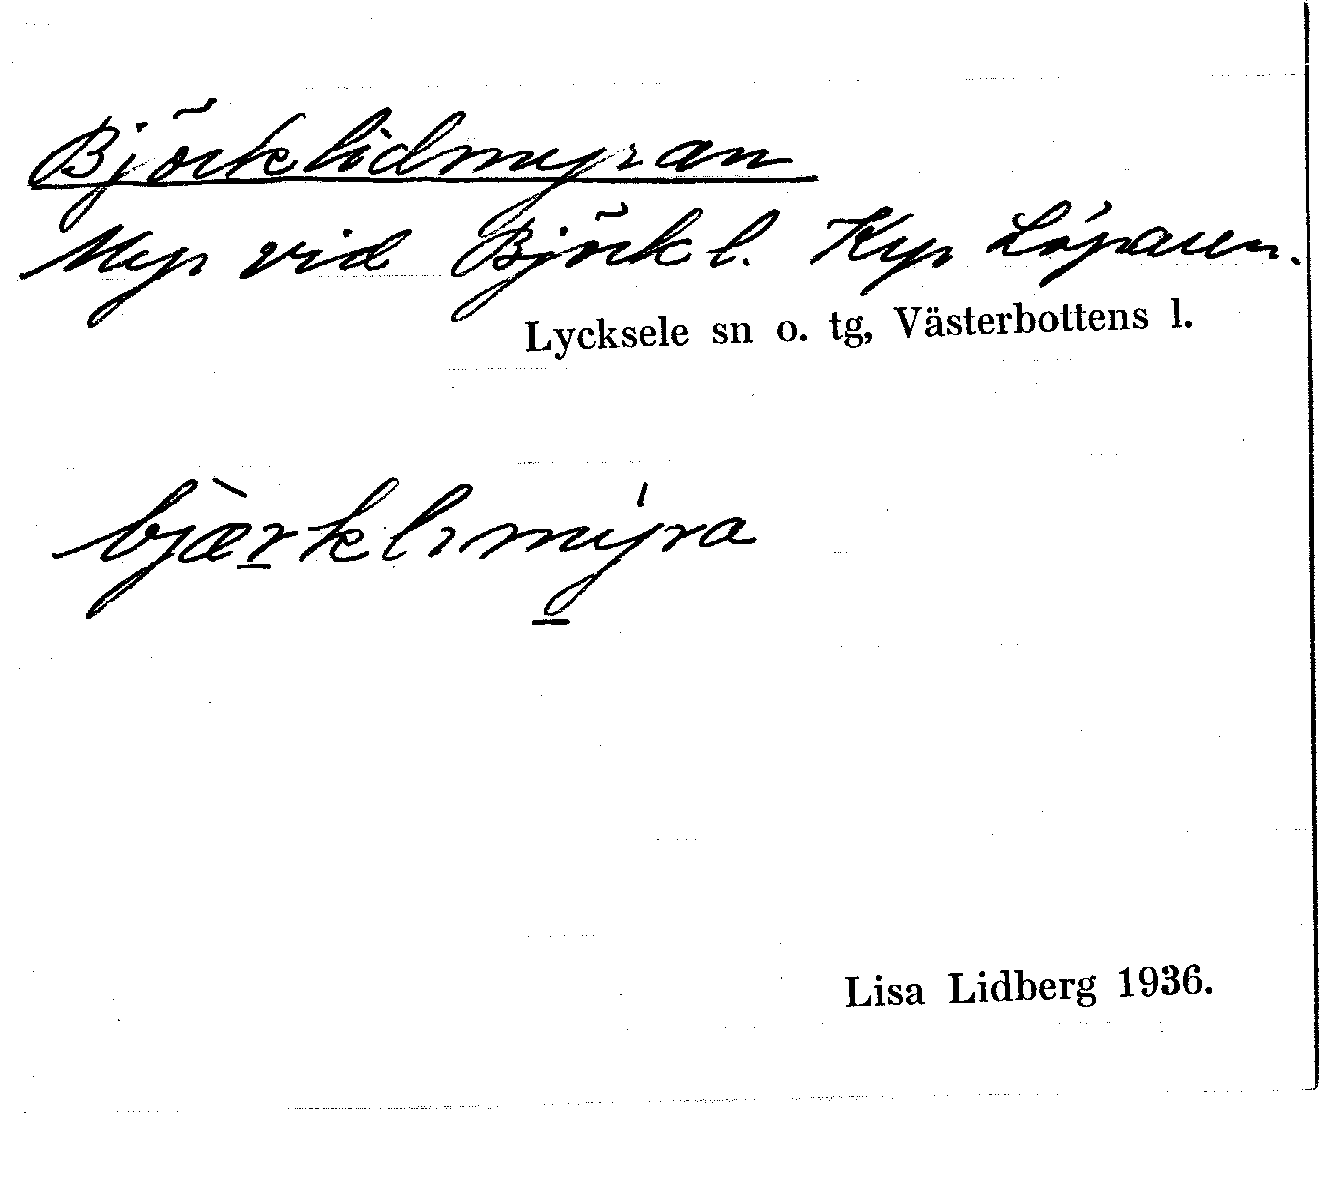 Björklidmyran
Myr vid Björkl. Kyr Löparen.
Lycksele sn o. tg, Västerbottens l.
bjærklımyra
Lisa Lidberg 1936.